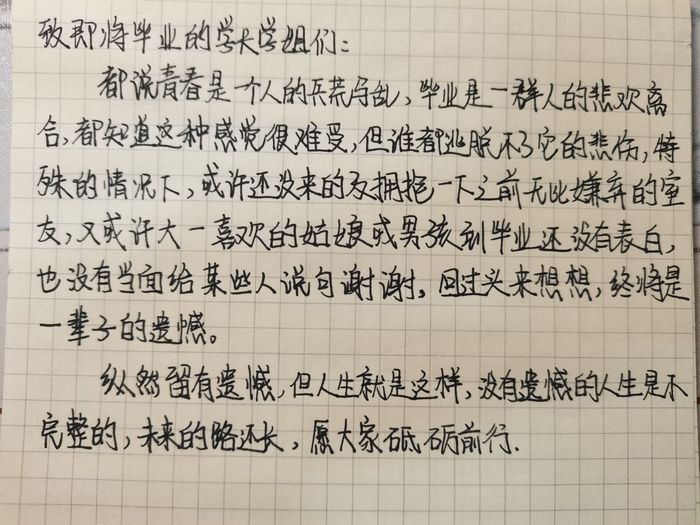 致即将毕业的学长学姐们：
都说青春是一个人的兵荒马乱，毕业是一群人的悲欢离
合，都知道这种感觉很难受，但谁都逃脱不了它的悲伤，特
殊的情况下，或许还没来的及拥抱一下之前无比嫌弃的室
友，又或许大一喜欢的姑娘或男孩到毕业还没有表白，
也没有当面给某些人说句谢谢。回过头来想想，终将是
一辈子的遗憾。
纵然留有遗憾，但人生就是这样，没有遗憾的人生是不
完整的，未来的路还长，愿大家砥砺前行.